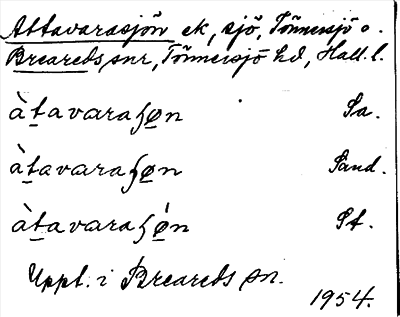 Attavarasjön ek, sjö, Tönnersjö o.
Breareds snr, Tönnersjö hd, Hall. l.
àt̲avaraɧø̲n Sa.
àt̲avaraɧø̲n Sand.
àt̲avaraɧǿ̲n St.
Uppt. i Breareds sn.
1954.